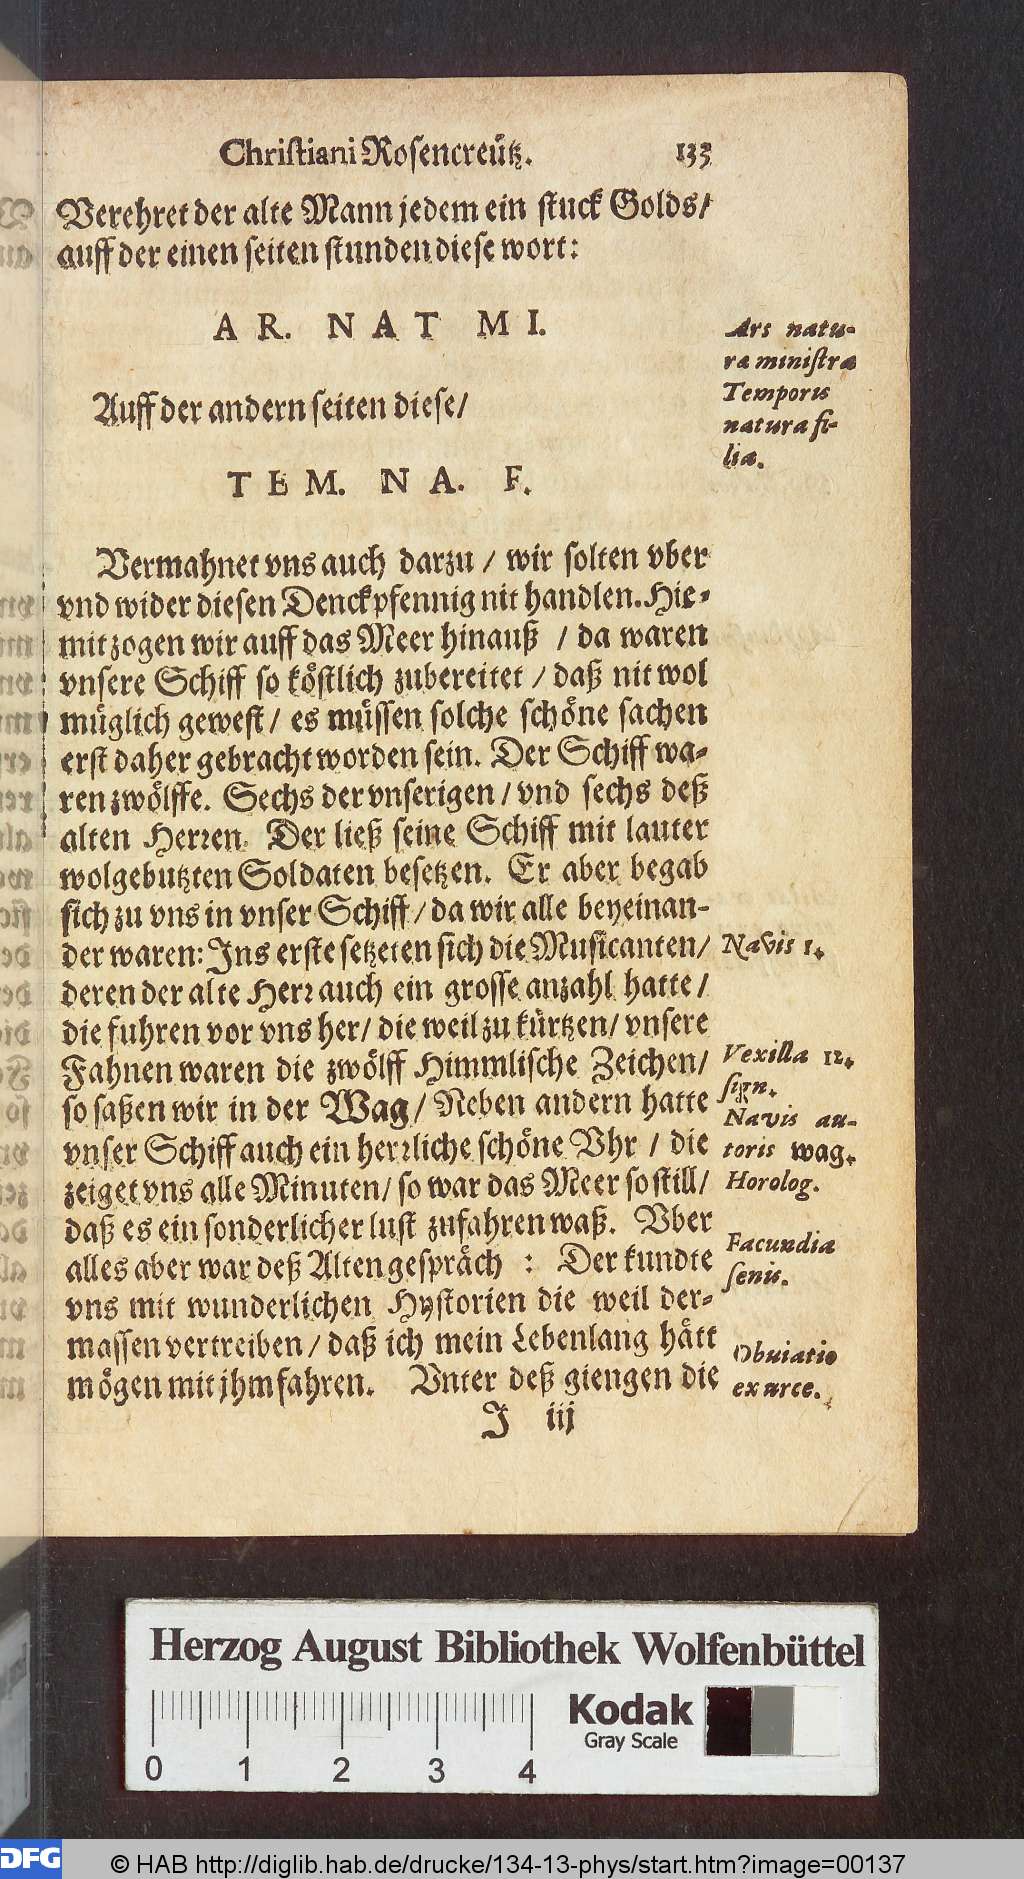 Christiani Rosencreütz. 133
Verehret der alte Mann jedem ein stuck Golds/
auff der einen seiten stunden diese wort:
AR. NAT MI.
Auff der andern seiten diese/
TEM. NA. F.
Vermahnet vns auch darzu / wir solten vber
vnd wider diesen Denckpfennig nit handlen. Hie-
mit zogen wir auff das Meer hinauß / da waren
vnsere Schiff so köstlich zubereitet / daß nit wol
müglich gewest / es müssen solche schöne sachen
erst daher gebracht worden sein. Der Schiff wa-
ren zwölffe. Sechs der vnserigen / vnd sechs deß
alten Herren. Der ließ seine Schiff mit lauter
wolgebutzten Soldaten besetzen. Er aber begab
sich zu vns in vnser Schiff / da wir alle beyeinan-
der waren: Ins erste setzeten sich die Musicanten/
deren der alte Herr auch ein grosse anzahl hatte /
die fuhren vor vns her/ die weil zu kürtzen/ vnsere
Fahnen waren die zwölff Himmlische Zeichen/
so saßen wir in der Wag/ Neben andern hatte
vnser Schiff auch ein herrliche schöne Vhr / die
zeiget vns alle Minuten/ so war das Meer so still/
daß es ein sonderlicher lust zufahren waß. Vber
alles aber war deß Alten gespräch : Der kundte
vns mit wunderlichen Hystorien die weil der-
massen vertreiben / daß ich mein Lebenlang hätt
mögen mit jhm fahren. Vnter deß giengen die
J iij
Ars natu-
ra ministra
Temporis
natura fi-
lia.
Navis 1.
Vexilla 12.
sign.
Navis au-
toris wag.
Horolog.
Facundia
senis.
Obuiatio
ex arce.
Herzog August Bibliothek Wolfenbüttel
Kodak
Gray Scale
0 1 2 3 4
DFG
© HAB http://diglib.hab.de/drucke/134-13-phys/start.htm?image=00137